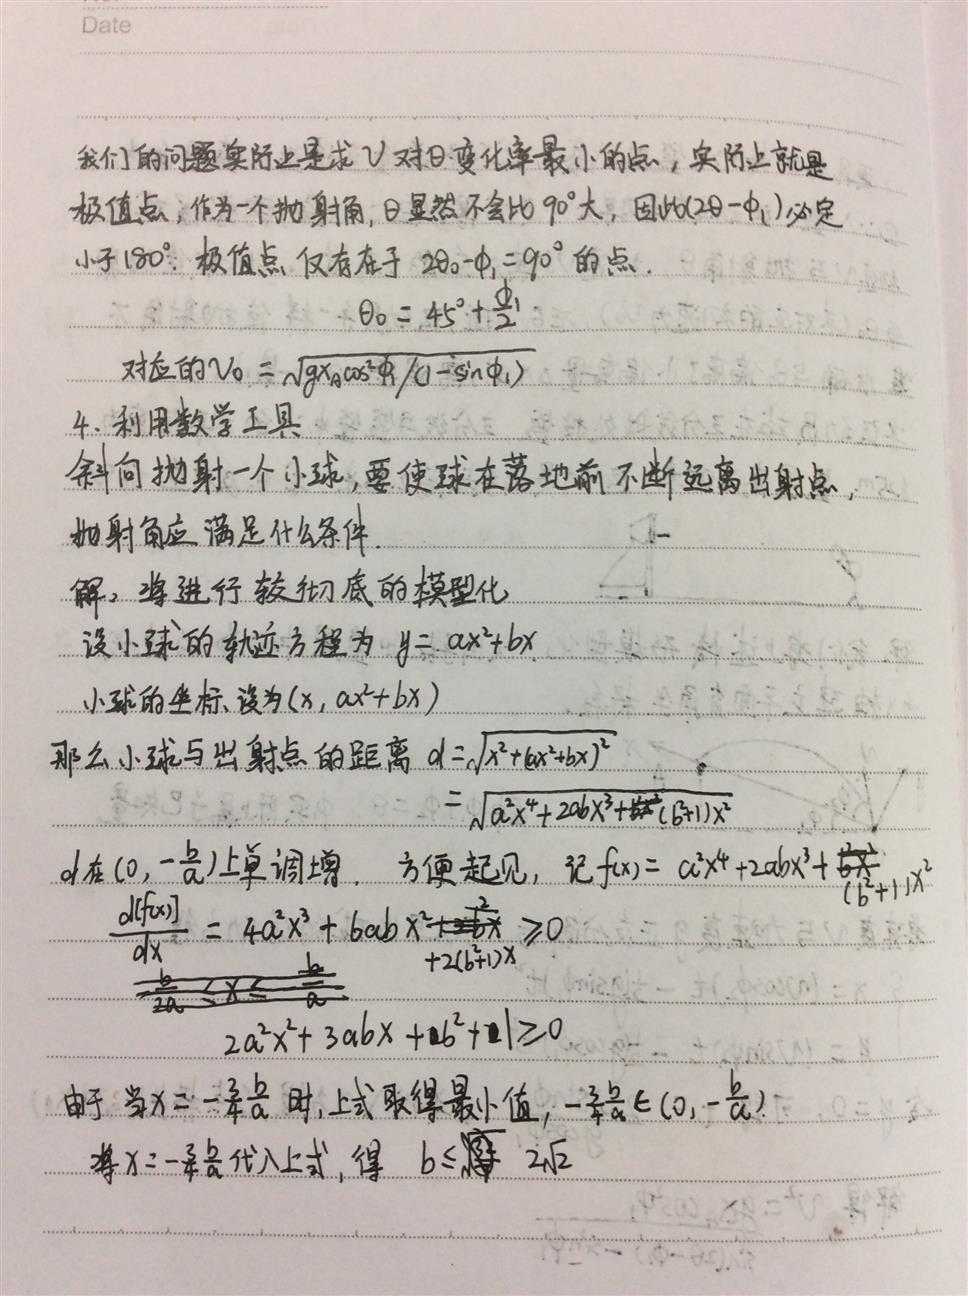 Date
我们的问题实际上是求 V 对θ变化率最小的点，实际上就是
极值点，作为一个抛射角，θ显然不会比90°大，因此(2θ-φ₁)必定
小于180°. 极值点仅存在于 2θ₀-φ₁=90°的点.
θ₀ = 45°+φ₁/2
对应的V₀ = √(gx_A cos²φ₁/(1-sinφ₁))
4. 利用数学工具
斜向抛射一个小球，要使球在落地前不断远离出射点，
抛射角应满足什么条件.
解：将进行较彻底的模型化
设小球的轨迹方程为 y= ax²+bx
小球的坐标设为(x, ax²+bx)
那么小球与出射点的距离 d=√(x²+(ax²+bx)²)
=√(a²x⁴+2abx³+(b²+1)x²)
d在(0, -b/a)上单调增. 方便起见，记f(x)= a²x⁴+2abx³+(b²+1)x²
d[f(x)]/dx = 4a²x³+6abx²+2(b²+1)x ≥0
2a²x²+3abx+b²+1≥0
由于当x=-3/4 b/a 时，上式取得最小值，-3/4 b/a∈(0, -b/a)
将x=-3/4 b/a代入上式，得 b≤ 2√2